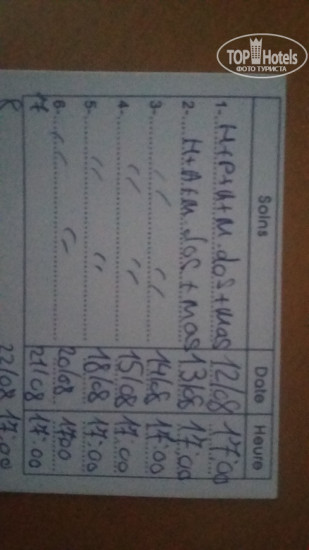 TOP Hotels
ФОТО ТУРИСТА
Soins Date Heure
1- H+P+A+M.dos+mas 12/08 17:00
2- H+A+M.dos+mas 13/08 17:00
3- '' '' 14/08 17:00
4- '' '' 15/08 17:00
5- '' '' 18/08 17:00
6- '' '' 20/08 17:00
7. 21/08 17:00
8 22/08 17:00